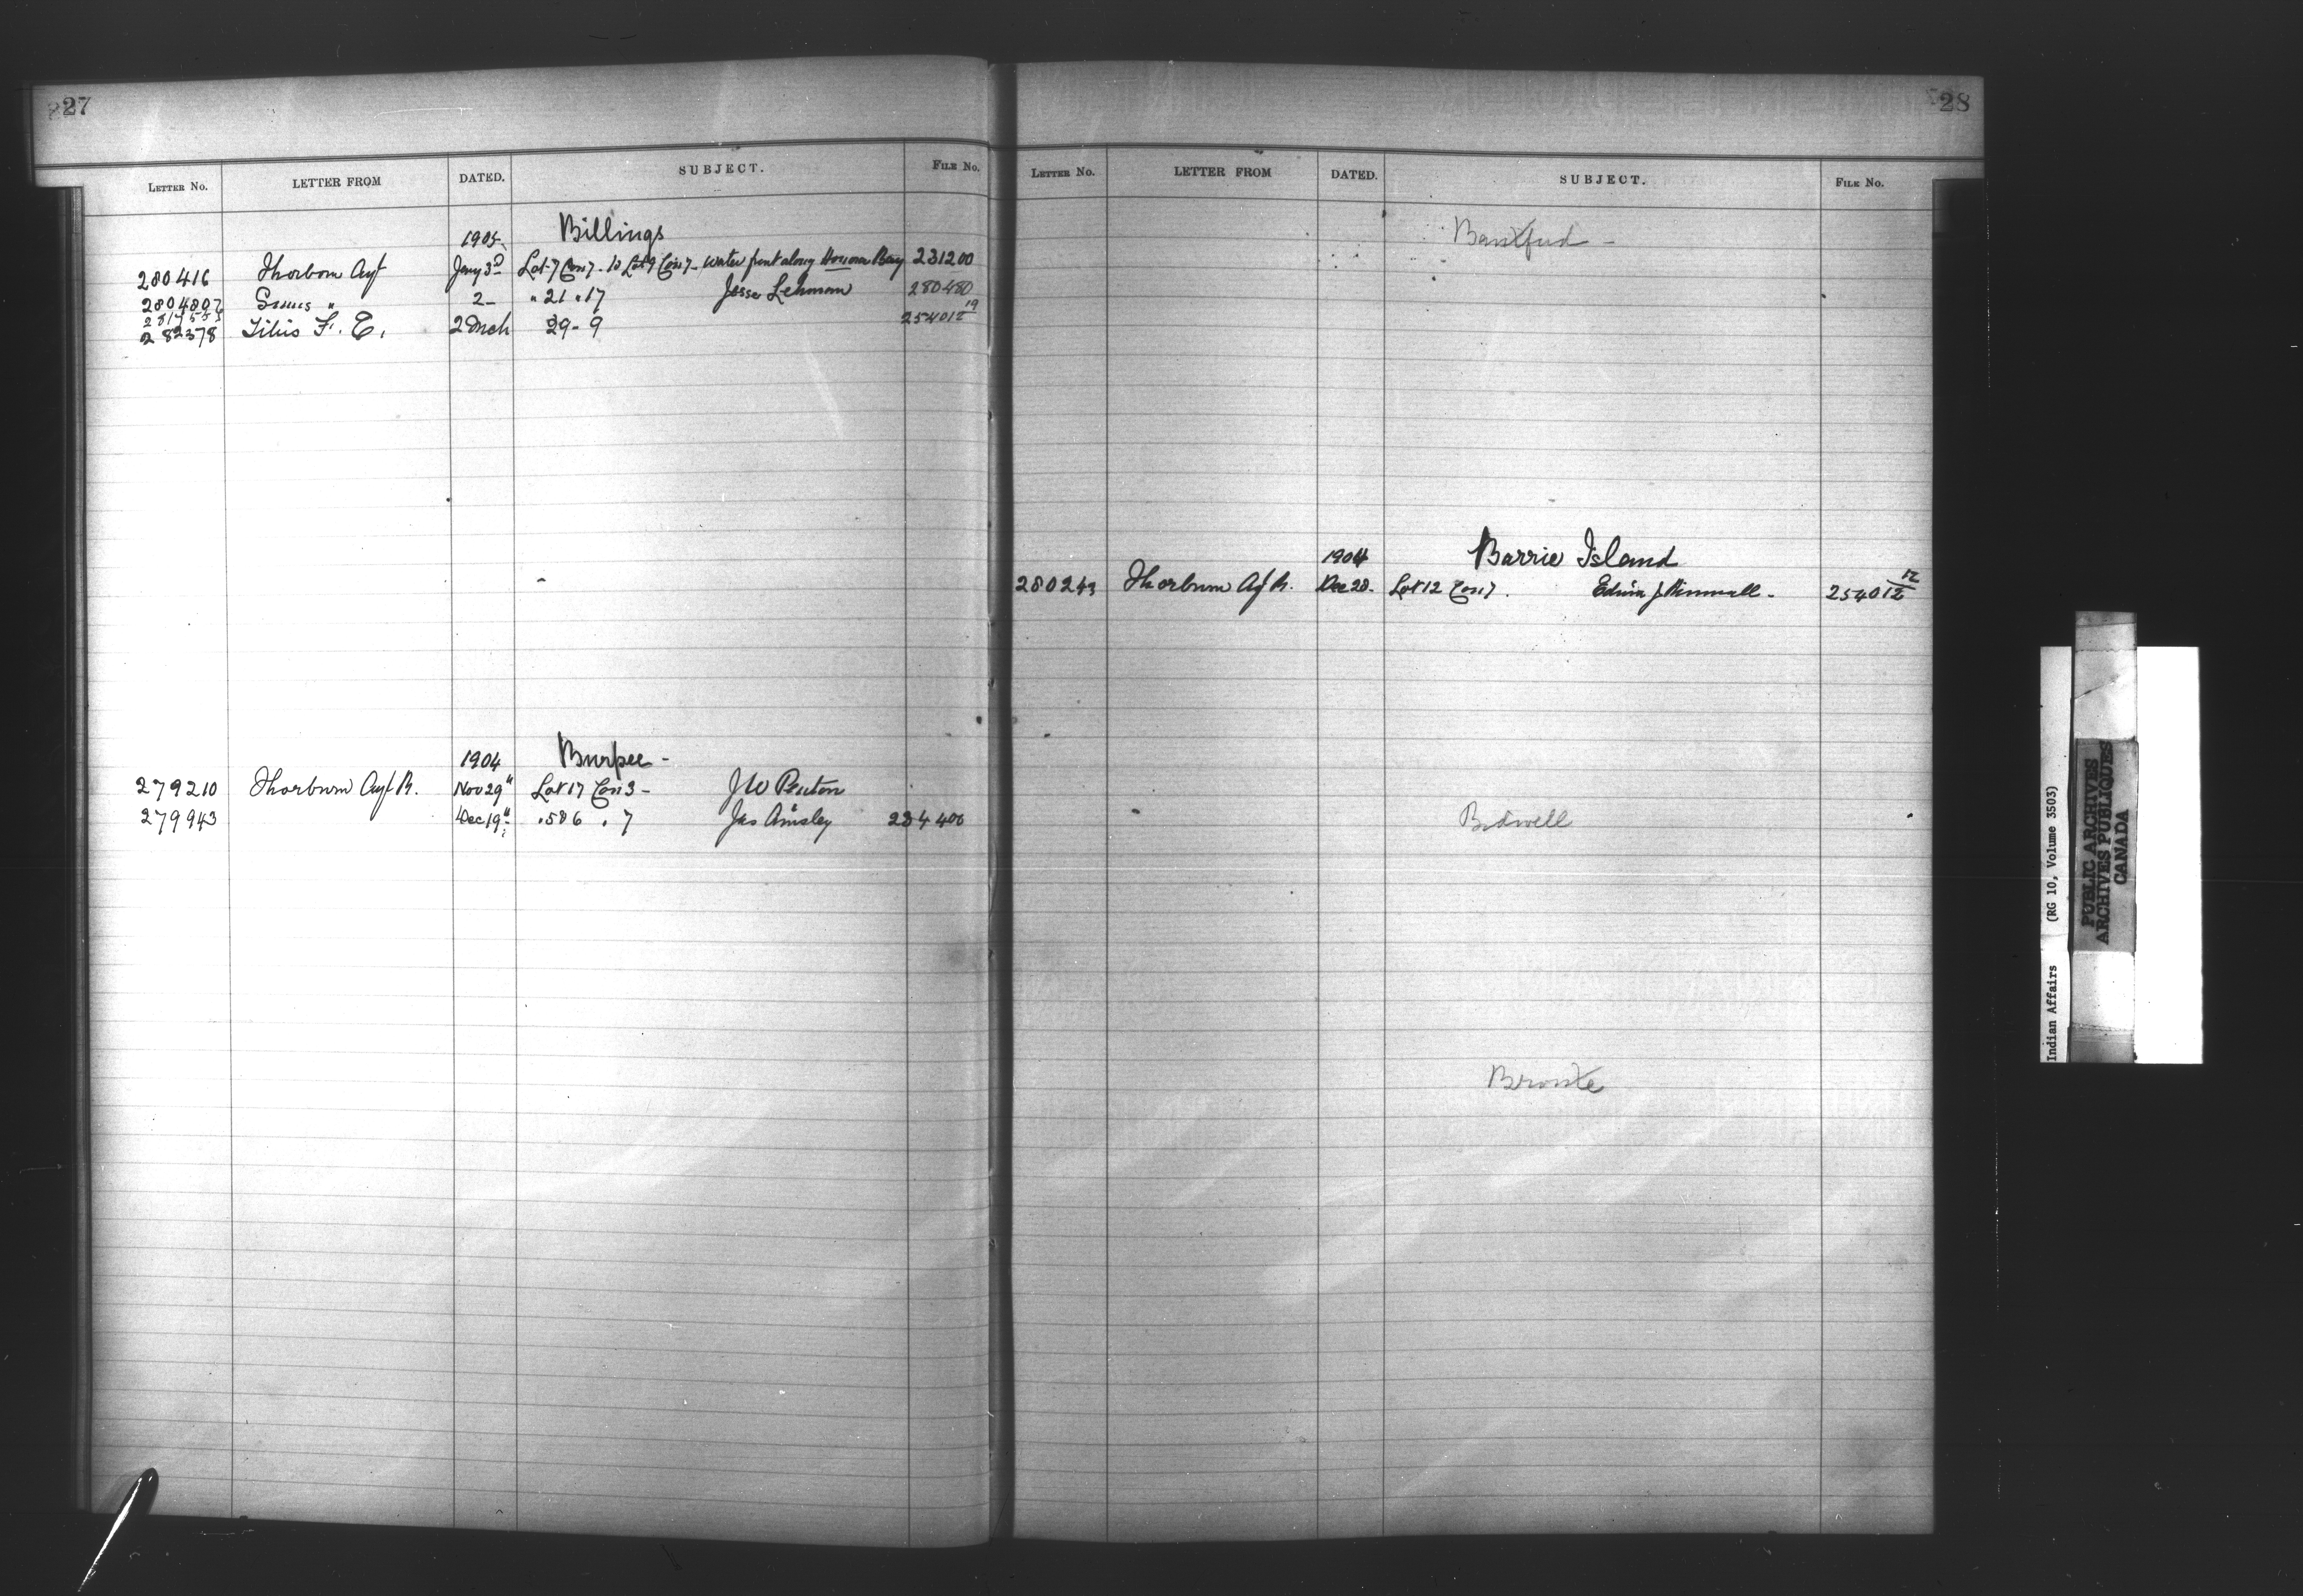 27
LETTER No. LETTER FROM DATED. SUBJECT. FILE No.
1905 Billings
280416 Thorborn Agt Jany 3d Lot 7 Con 7 - to Lot 9 Con 7 - Water front along Honora Bay 231200
280480 Sims " 2 - " 21 " 17 Jesse Lehman 280480
282378 Titus F. E. 2 Mch 29 - 9 254012 19
1904 Burpee -
279210 Thorburn Agt R. Nov 29" Lot 17 Con 3 - J W Penton
279943 Dec 19" . 5 & 6 . 7 Jas Ainsley 234400
28
LETTER No. LETTER FROM DATED. SUBJECT. FILE No.
1904 Barrie Island
280243 Thorburn Agt R. Dec 28. Lot 12 Con 7. Edwin J. 254012 12
Bidwell
Indian Affairs (RG 10, Volume 3503)
PUBLIC ARCHIVES
ARCHIVES PUBLIQUES
CANADA